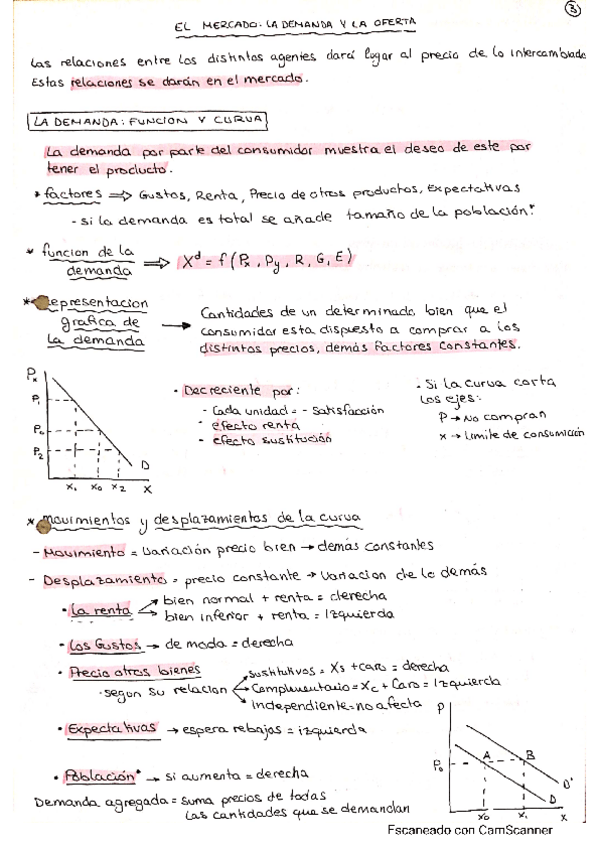 3
EL MERCADO: LA DEMANDA Y LA OFERTA
Las relaciones entre los distintos agentes dará lugar al precio de lo intercambiado
Estas relaciones se darán en el mercado.
LA DEMANDA: FUNCION Y CURVA
La demanda por parte del consumidor muestra el deseo de este por
tener el producto.
* factores ⇒ Gustos, Renta, Precio de otros productos, Expectativas
- si la demanda es total se añade tamaño de la población*
* funcion de la
demanda ⇒ Xᵈ = f (Px, Py, R, G, E)
* Representacion
grafica de
la demanda
→ Cantidades de un determinado bien que el
consumidor esta dispuesto a comprar a los
distintos precios, demás factores constantes.
Px
P1
P0
P2
D
X1 X0 X2 X
· Decreciente por:
- Cada unidad = - satisfacción
- efecto renta
- efecto sustitución
· Si la curva corta
los ejes:
P → No compran
x → Limite de consumición
* Movimientos y desplazamientos de la curva
- Movimiento = Variación precio bien → demás constantes
- Desplazamiento = precio constante → Variacion de lo demás
· La renta
bien normal + renta = derecha
bien inferior + renta = Izquierda
· Los Gustos → de moda = derecha
· Precio otros bienes
- segun su relacion
sustitutivos = Xs + caro = derecha
Complementario = Xc + Caro = Izquierda
Independiente = no afecta
· Expectativas → espera rebajas = izquierda
· Población* → si aumenta = derecha
Demanda agregada = suma precios de todas
las cantidades que se demandan
P
P0
A B
D'
D
X0 X1 X
Escaneado con CamScanner